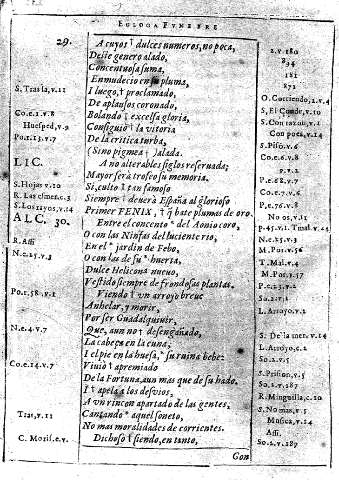 EGLOGA FVNEBRE
29. A cuyos † dulces numeros, no poca,
Deste genero alado,
Concentuosa suma,
Enmudecio en su pluma,
S. Tras la, v. 11
I luego, † proclamado,
De aplausos coronado,
Co. e. 1. v. 8
Bolando † excelsa gloria,
Huesped, v. 9
Consiguio † la vitoria
Po. t. 13. v. 7
De la critica turba,
(Sino pigmea † )alada.
LIC.
A no alterables siglos reseruada;
Mayor será trofeo su memoria.
S. Hojas v. 10
Si, culto † tan famoso
R. Las esmer. c. 3
Siempre † deuerá España al glorioso
S. Los rayos, v. 14
Primer FENIX, † q̃ bate plumas de oro.
ALC. 30.
Entre el concento * del Aonio coro,
O con las Ninfas del luciente rio,
R. Assi
En el * jardin de Febo,
N. c. 25. v. 3
O con las de su * huerta,
Dulce Helicona nueuo,
Vestido siempre de frondosas plantas,
Po. t. 58. v. 1
Viendo † vn arroyo breue
Anhelar, y morir,
Por ser Guadalquiuir,
N. e. 4. v. 7
Que, aun no † desengañado,
La cabeça en la cuna;
I el pie en la huesa, * su ruina bebe:
Co. e. 14. v. 7
Viuio † apremiado
De la Fortuna, aun mas que de su hado.
I † apela a los desvios,
A vn rincon apartado de las gentes,
Tras, v. 11
Cantando * aquel soneto,
No mas moralidades de corrientes.
C. Moris. e. v.
Dichoso † siendo, en tanto,
Gon
2. v. 180
834
181
872
O. Corriendo, 2. v. 4
S. El Conde, v. 10
S. Con razon, v. 1
Con poca, v. 14
S. Piso. v. 6
Co. e. 6. v. 8
p. v. 2
P. e. 68. v. 7
Co. e. 7. v. 6
P. e. 76. v. 8
No os, v. 15
p. 45. v. 1. Tmal. v. 45
N. c. 25. v. 3
M. Por. v. 56
T. Mal. v. 4
M. Por. v. 57
P. c. 25. v. 2
So. 2. v. 1
L. Arroyo, v. 1
S. De la mer. v. 14
L. Arroyo, c. 2
So. 2. v. 5
S. Prision, v. 5
So. 2. v. 187
R. Minguilla, c. 10
S. No mas, v. 5
Musica, v. 14
Assi.
So. 2. v. 187